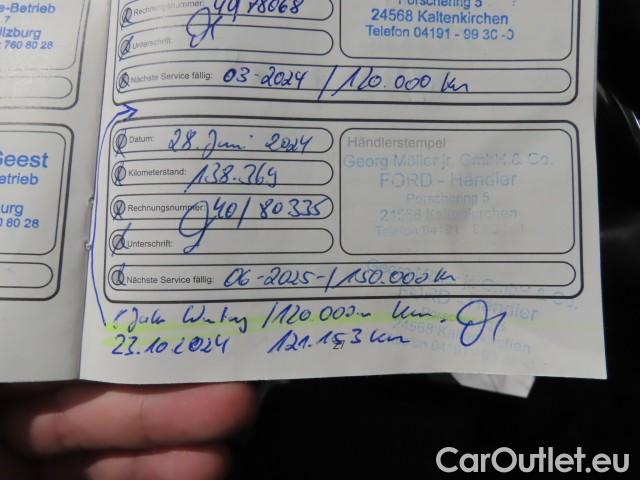 e-Betrieb
7
ilzburg
760 80 28
Rechnungsnummer:
Unterschrift:
Nächste Service fällig: 03-2024 / 120.000 km
Porschering 5
24568 Kaltenkirchen
Telefon 04191 - 99 30 -0
Geest
etrieb
burg
0 80 28
Datum: 28. Juni 2024
Kilometerstand: 138.369
Rechnungsnummer: 40/80335
Unterschrift:
Nächste Service fällig: 06-2025- / 150.000 km
Händlerstempel
Georg Möller jr. GmbH & Co.
FORD - Händler
Porschering 5
24568 Kaltenkirchen
Telefon 04191
/120.000 km.
23.10.2024 121.153 km
21
CarOutlet.eu